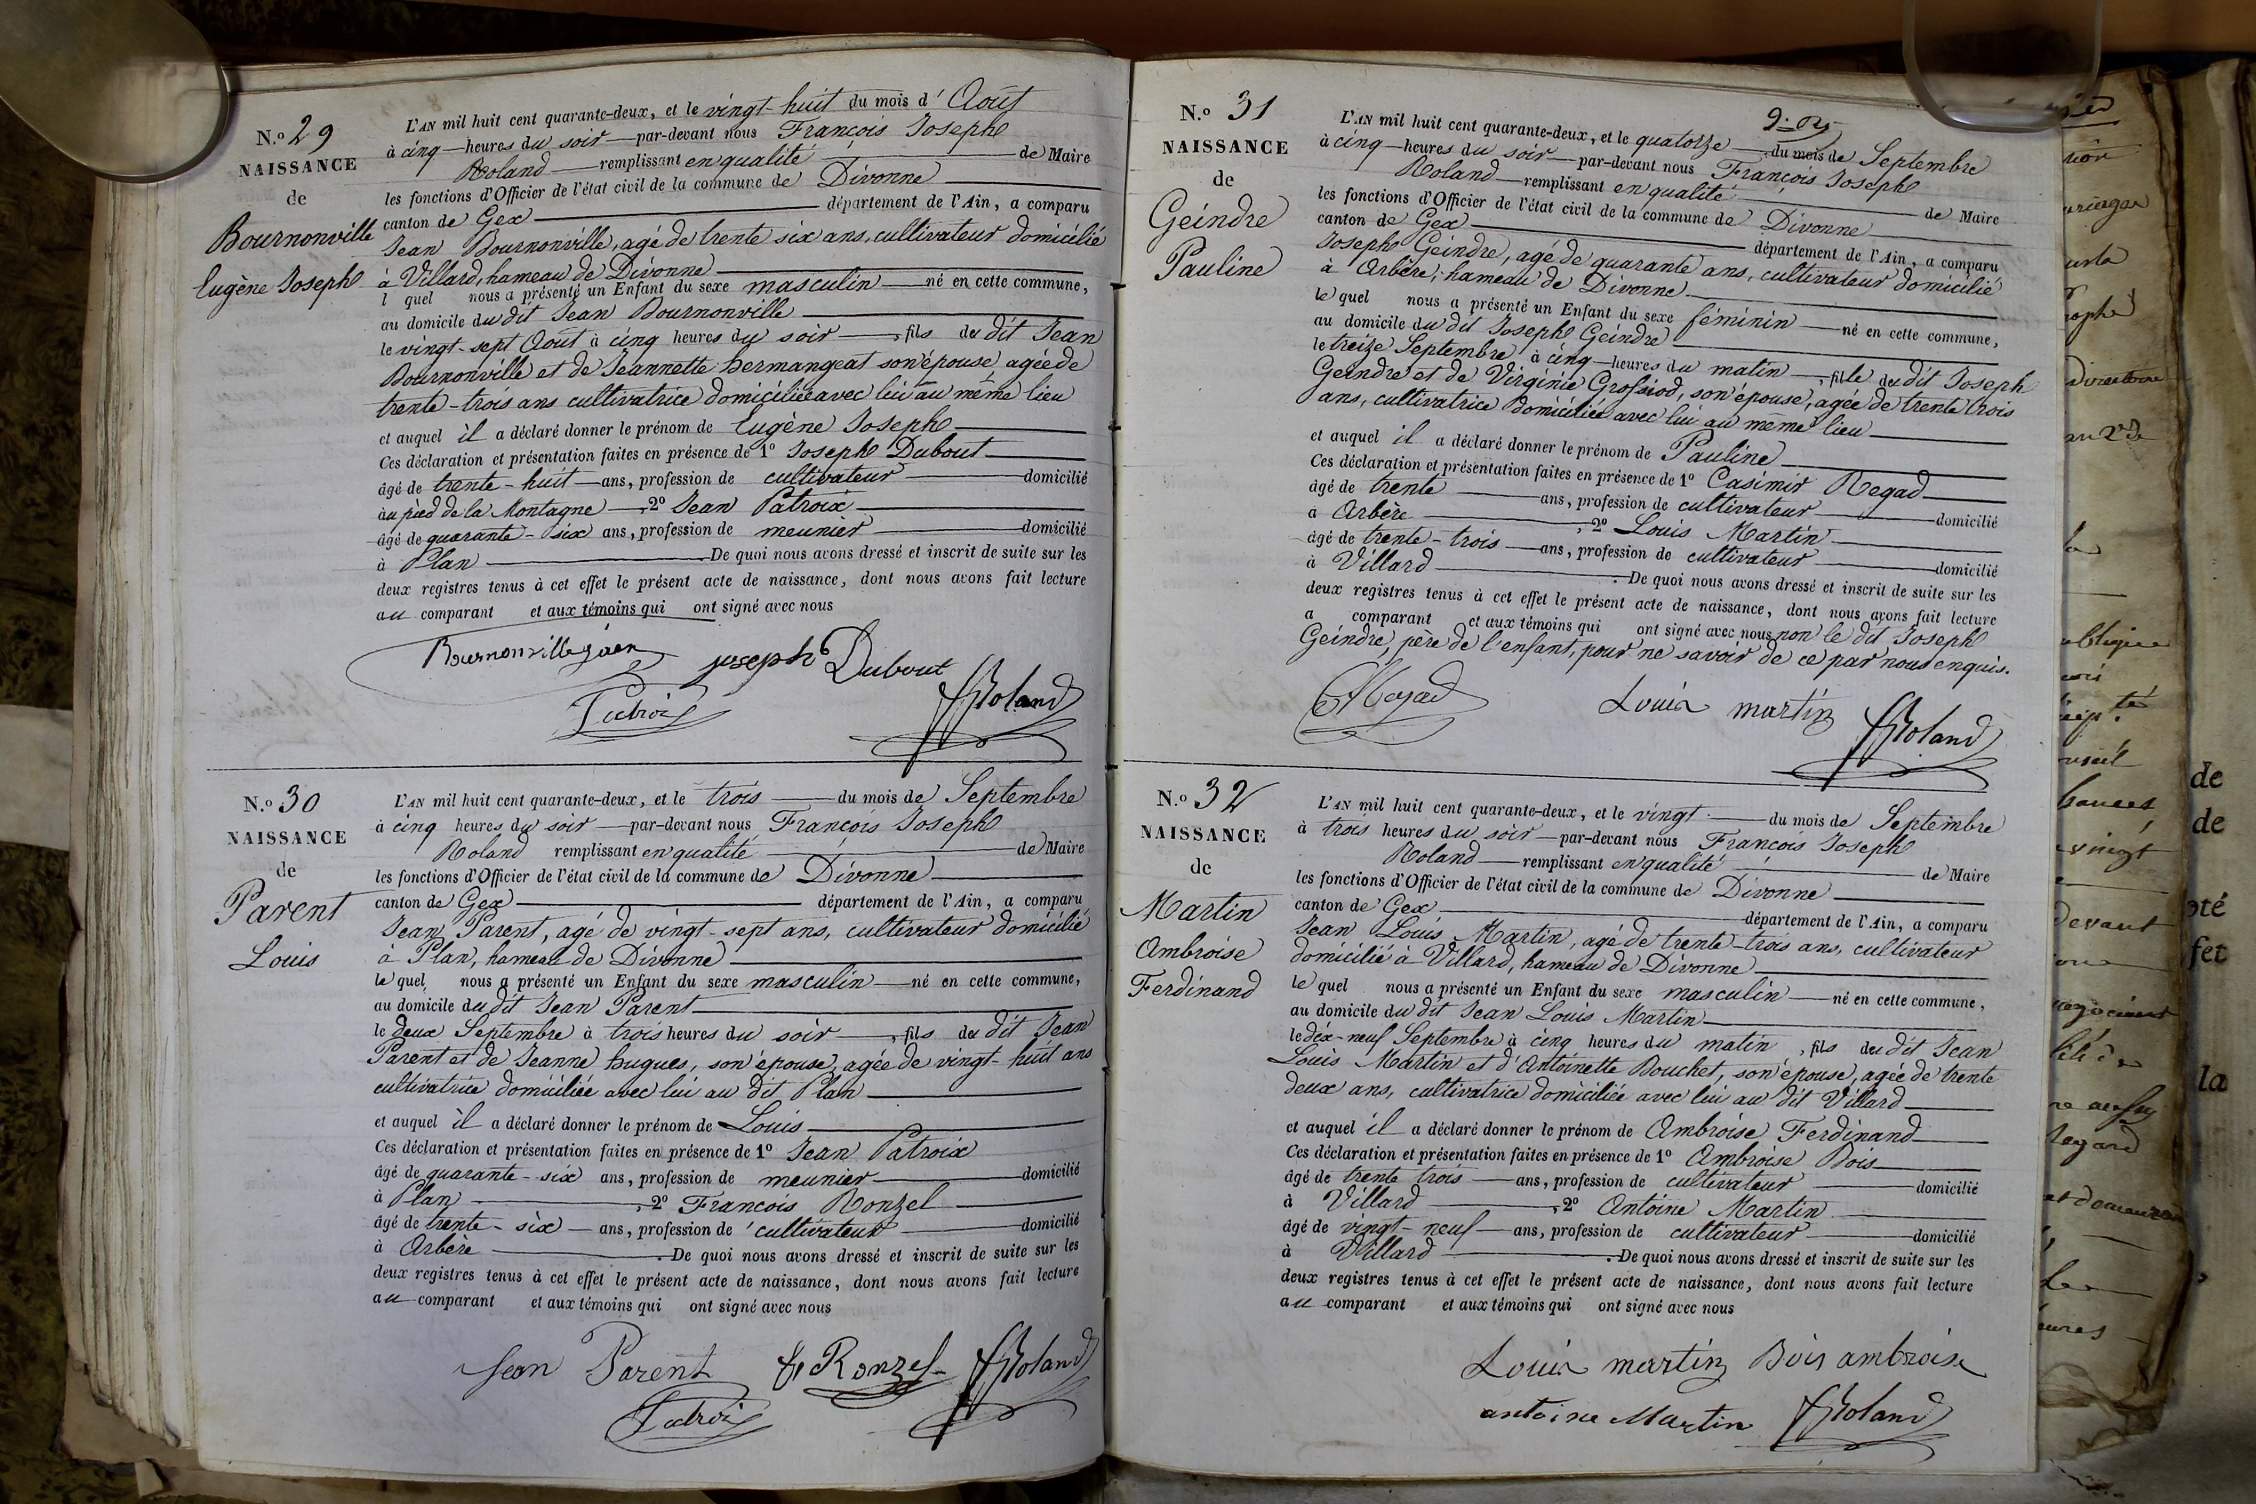 N.o 29
NAISSANCE
de
Bournonville
Eugène Joseph
L'AN mil huit cent quarante-deux, et le vingt-huit du mois d'Août
à cinq heures du soir par-devant nous François Joseph
Roland remplissant en qualité de Maire
les fonctions d'Officier de l'état civil de la commune de Divonne
canton de Gex département de l'Ain, a comparu
Jean Bournonville, agé de trente six ans, cultivateur domicilié
à Villard, hameau de Divonne
l quel nous a présenté un Enfant du sexe masculin né en cette commune,
au domicile du dit Jean Bournonville
le vingt-sept Août à cinq heures du soir, fils du dit Jean
Bournonville et de Jeannette hermangeat son épouse, agée de
trente-trois ans cultivatrice domiciliée avec lui au même lieu
et auquel il a déclaré donner le prénom de Eugène Joseph
Ces déclaration et présentation faites en présence de 1o Joseph Dubout
âgé de trente-huit ans, profession de cultivateur domicilié
au pied de la Montagne, 2o Jean Patroix
âgé de quarante-six ans, profession de meunier domicilié
à Plan De quoi nous avons dressé et inscrit de suite sur les
deux registres tenus à cet effet le présent acte de naissance, dont nous avons fait lecture
au comparant et aux témoins qui ont signé avec nous
Bournonville jean joseph Dubout
Patroix FJRoland
N.o 30
NAISSANCE
de
Parent
Louis
L'AN mil huit cent quarante-deux, et le trois du mois de Septembre
à cinq heures du soir par-devant nous François Joseph
Roland remplissant en qualité de Maire
les fonctions d'Officier de l'état civil de la commune de Divonne
canton de Gex département de l'Ain, a comparu
Jean Parent, agé de vingt-sept ans, cultivateur domicilié
à Plan, hameau de Divonne
le quel, nous a présenté un Enfant du sexe masculin né en cette commune,
au domicile du dit Jean Parent
le deux Septembre à trois heures du soir, fils du dit Jean
Parent et de Jeanne hugues, son épouse, agée de vingt-huit ans
cultivatrice domiciliée avec lui au dit Plan
et auquel il a déclaré donner le prénom de Louis
Ces déclaration et présentation faites en présence de 1o Jean Patroix
âgé de quarante-six ans, profession de meunier domicilié
à Plan, 2o François Ronzel
âgé de trente-six ans, profession de cultivateur domicilié
à Arbère. De quoi nous avons dressé et inscrit de suite sur les
deux registres tenus à cet effet le présent acte de naissance, dont nous avons fait lecture
au comparant et aux témoins qui ont signé avec nous
Jean Parent f. Ronzel FJRoland
Patroix
N.o 31
NAISSANCE
de
Geindre
Pauline
L'AN mil huit cent quarante-deux, et le quatorze du mois de Septembre
à cinq heures du soir par-devant nous François Joseph
Roland remplissant en qualité de Maire
les fonctions d'Officier de l'état civil de la commune de Divonne
canton de Gex département de l'Ain, a comparu
Joseph Geindre, agé de quarante ans, cultivateur domicilié
à Arbère, hameau de Divonne
le quel nous a présenté un Enfant du sexe féminin né en cette commune,
au domicile du dit Joseph Geindre
le treize Septembre à cinq heures du matin, fille du dit Joseph
Geindre et de Virginie Grossiod, son épouse, agée de trente trois
ans, cultivatrice domiciliée avec lui au même lieu
et auquel il a déclaré donner le prénom de Pauline
Ces déclaration et présentation faites en présence de 1o Casimir Regad
âgé de trente ans, profession de cultivateur domicilié
à Arbère, 2o Louis Martin
âgé de trente-trois ans, profession de cultivateur domicilié
à Villard. De quoi nous avons dressé et inscrit de suite sur les
deux registres tenus à cet effet le présent acte de naissance, dont nous avons fait lecture
a comparant et aux témoins qui ont signé avec nous non le dit Joseph
Geindre, père de l'enfant, pour ne savoir de ce par nous enquis.
Regad Louis martin FJRoland
N.o 32
NAISSANCE
de
Martin
Ambroise
Ferdinand
L'AN mil huit cent quarante-deux, et le vingt du mois de Septembre
à trois heures du soir par-devant nous François Joseph
Roland remplissant en qualité de Maire
les fonctions d'Officier de l'état civil de la commune de Divonne
canton de Gex département de l'Ain, a comparu
Jean Louis Martin, agé de trente-trois ans, cultivateur
domicilié à Villard, hameau de Divonne
le quel nous a présenté un Enfant du sexe masculin né en cette commune,
au domicile du dit Jean Louis Martin
le dix-neuf Septembre à cinq heures du matin, fils du dit Jean
Louis Martin et d'Antoinette Bouchet, son épouse, agée de trente
deux ans, cultivatrice domiciliée avec lui au dit Villard
et auquel il a déclaré donner le prénom de Ambroise Ferdinand
Ces déclaration et présentation faites en présence de 1o Ambroise Bois
âgé de trente trois ans, profession de cultivateur domicilié
à Villard, 2o Antoine Martin
âgé de vingt-neuf ans, profession de cultivateur domicilié
à Villard. De quoi nous avons dressé et inscrit de suite sur les
deux registres tenus à cet effet le présent acte de naissance, dont nous avons fait lecture
au comparant et aux témoins qui ont signé avec nous
Louis martin Bois ambroise
antoine Martin FJRoland
de
de
la